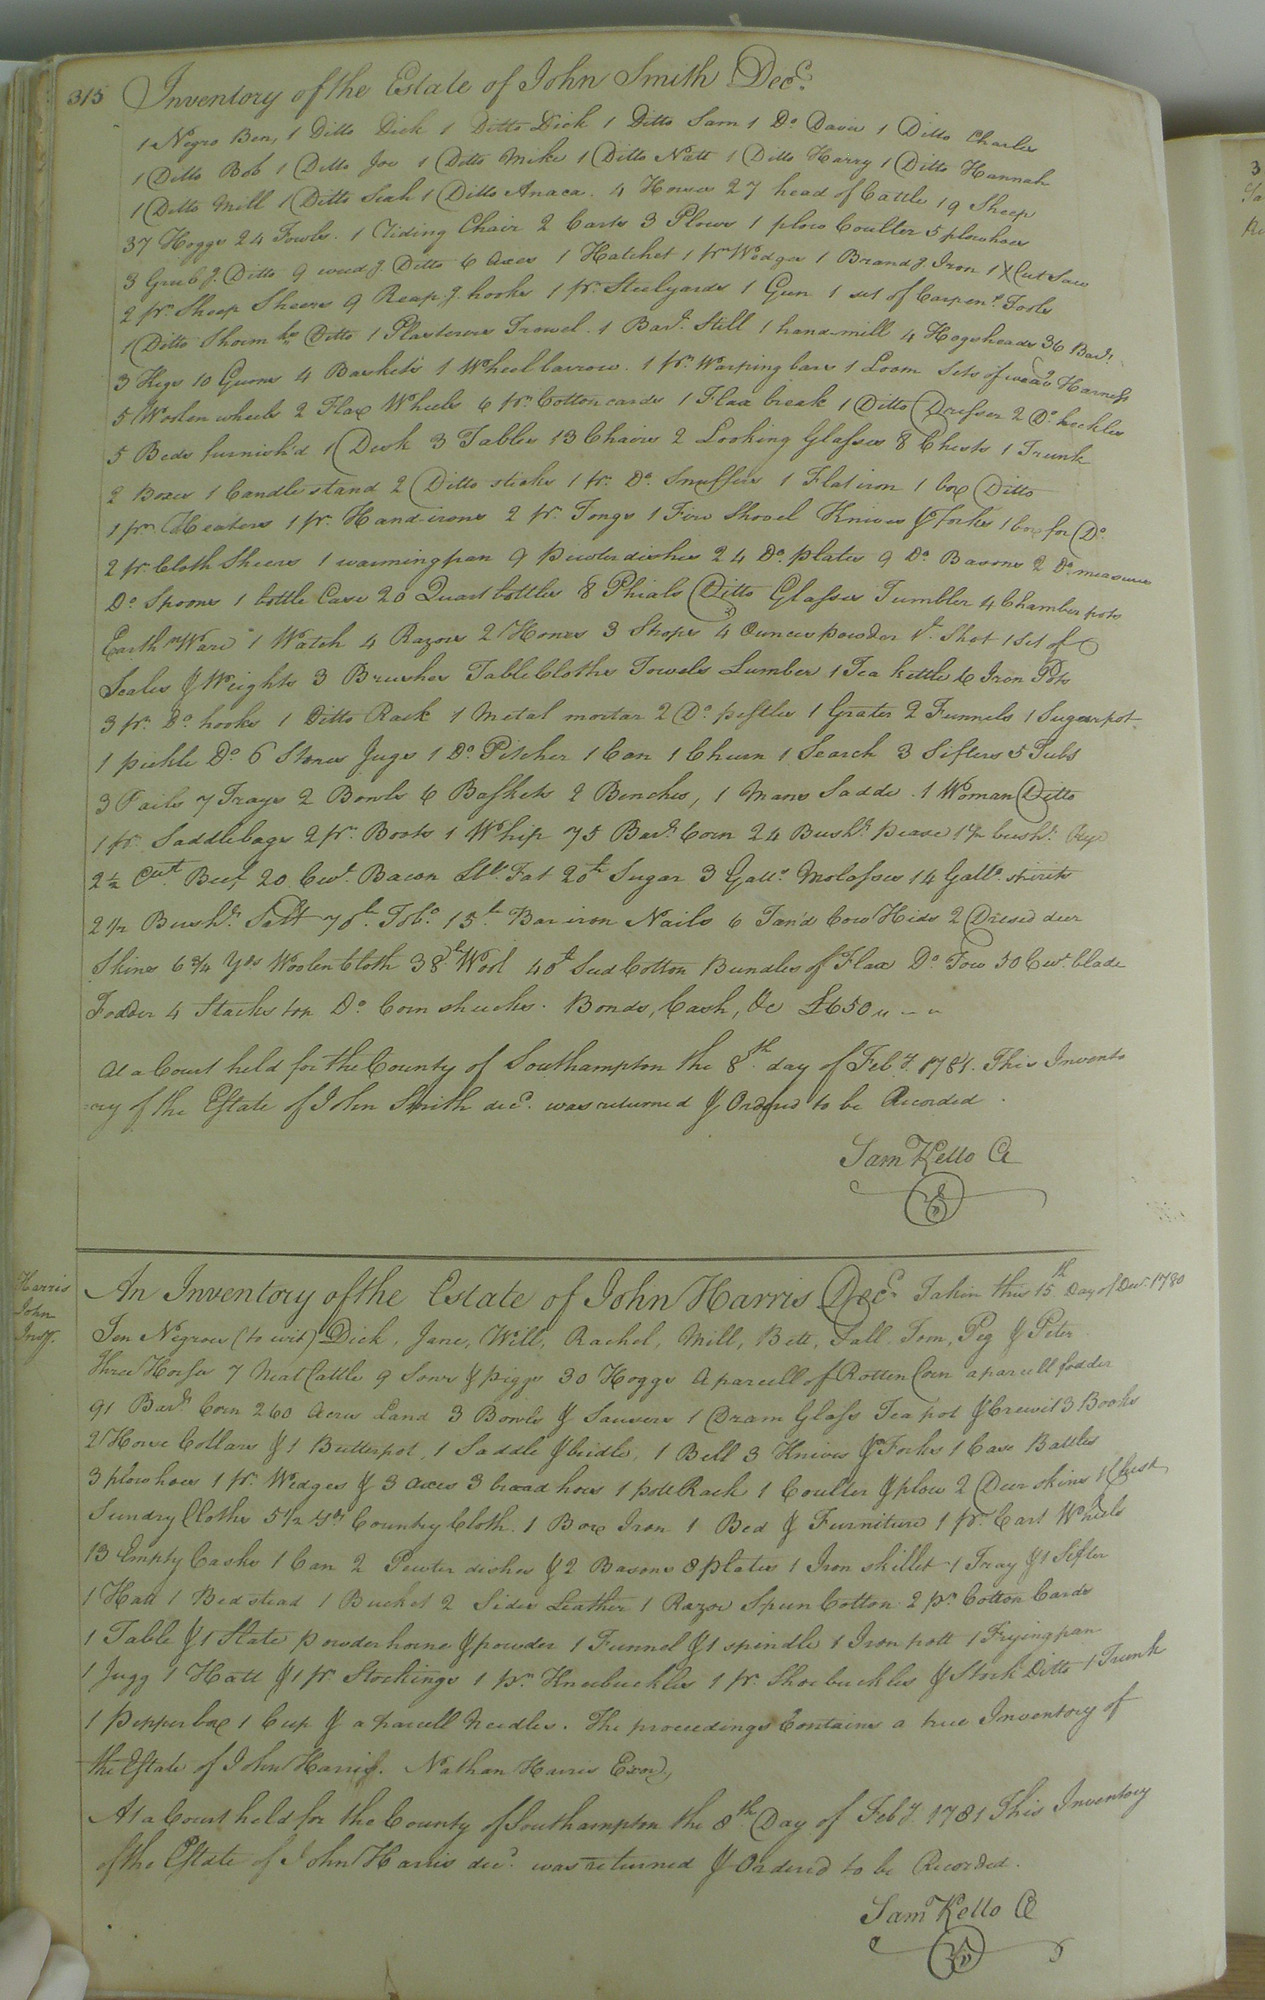 315 Inventory of the Estate of John Smith Decd.
1 Negro Ben, 1 Ditto Dick 1 Ditto Dick 1 Ditto Sam 1 Do Davie 1 Ditto Charles
1 Ditto Bob 1 Ditto Joe 1 Ditto Mike 1 Ditto Natt 1 Ditto Harry 1 Ditto Hannah
1 Ditto Mill 1 Ditto Leah 1 Ditto Anaca. 4 Horses 27 head of Cattle 19 Sheep
37 Hoggs 24 Fowls. 1 Riding Chair 2 Carts 3 Plows 1 plow Coulter 5 plowhoes
3 Grubg. Ditto 9 weedg Ditto 6 Axes 1 Hatchet 1 pr Wedges 1 Brandg Iron 1 X Cut Saw
2 pr. Sheep Sheers 9 Reapg. hooks 1 pr. Steelyards 1 Gun 1 set of Carpenrs Tools
1 Ditto Shoemkrs Ditto 1 Plasterers Trowel. 1 Barl. Still 1 hand-mill 4 Hogsheads 36 Barls.
3 Kegs 10 Gums 4 Baskets 1 Wheelbarrow. 1 pr. Warping bars 1 Loom Sets of weavg Harness
5 Woolen wheels 2 Flax Wheels 6 pr. Cotton cards 1 Flax break 1 Ditto Dresser 2 Do. heckles
5 Beds furnish'd 1 Desk 3 Tables 13 Chairs 2 Looking Glasses 8 Chests 1 Trunk
2 Boxes 1 Candlestand 2 Ditto sticks 1 pr. Do. Snuffers 1 Flat iron 1 box Ditto
1 pr. Heaters 1 pr. Handirons 2 pr. Tongs 1 Fire Shovel Knives & forks 1 box for Do.
2 pr. Cloth Sheers 1 warmingpan 9 pewter dishes 24 Do. plates 9 Do. Basons 2 Do. measures
Do. Spoons 1 bottle Case 20 Quart bottles 8 Phials Ditto Glasses Tumbler 4 Chamber pots
Earthn Ware 1 Watch 4 Razors 2 Hones 3 Strops 4 Ounces powder Shot 1 Set of
Scales & Weights 3 Brushes Table Cloths Towels Lumber 1 Tea kettle 6 Iron Pots
3 pr. Do. hooks 1 Ditto Rack 1 Metal mortar 2 Do. pestles 1 Grater 2 Funnels 1 Sugar pot
1 pickle Do 6 Stone Jugs 1 Do Pitcher 1 Can 1 Churn 1 Search 3 Sifters 5 Tubs
3 Pails 7 Trays 2 Bowls 6 Baskets 2 Benches, 1 Mans Saddle. 1 Woman Ditto
1 pr. Saddlebags 2 pr. Boots 1 Whip 75 Barls. Corn 24 Bushls. pease bushl. Rye
2½ Cwt. Beef 20 Cwt. Bacon Fat 20 lb Sugar 3 Galls. Molasses 14 Galls. spirits
2½ Bushls. Salt 70 lb. Tobo. 13 lb. Bar iron Nails 6 Tan'd Cow Hides 2 Dressed deer
Skins 6¾ Yds Woolen Cloth 38 lb Wool 40 lb Seed Cotton Bundles of Flax Do Tow 50 Cwt. blade
Fodder 4 Stacks top Do Corn shucks. Bonds, Cash, &c £650
At a Court held for the County of Southampton the 8th. day of Feby. 1781. This Invento
ry of the Estate of John Smith decd. was returned & Ordered to be Recorded.
Sam Kello Cl
Harris
John
Invy.
An Inventory of the Estate of John Harris Decd. Taken this 15th Day of Decr. 1780
Ten Negroes (to wit) Dick, Jane, Will, Rachel, Mill, Bett, Sall. Tom, Peg & Peter
three Horses 7 Neat Cattle 9 Sows & piggs 30 Hoggs a parcell of Rotten Corn a parcell fodder
91 Barls. Corn 260 Acres Land 3 Bowls & Sausers 1 Dram Glass Tea pot & Crewit 3 Books
2 Horse Collars & 1 Butterpot, 1 Saddle & bridle, 1 Bell 3 Knives & Forks 1 Case Bottles
3 plowhoes 1 pr. Wedges & 3 axes 3 broad hoes 1 pott Rack 1 Coulter & plow 2 Deer skins 1 Chest
Sundry Cloths 5½ yds Country Cloth. 1 Box Iron 1 Bed & Furniture 1 pr. Cart Wheels
13 Empty Casks 1 Can 2 Pewter dishes & 2 Basons 8 plates 1 Iron skillet 1 Tray & 1 Sifter
1 Hatt 1 Bedstead 1 Bucket 2 Sides Leather 1 Razor Spun Cotton 2 pr Cotton Cards
1 Table & 1 Slate powderhorne & powder 1 Funnel & 1 spindle 1 Iron pott 1 Fryingpan
1 Jugg 1 Hatt & 1 pr. Stockings 1 pr. Kneebuckles 1 pr. Shoebuckles & Stock Ditto 1 Trunk
1 Pepperbox 1 Cup & a parcell Needles. The proceedings Contains a true Inventory of
the Estate of John Harris. Nathan Harris Exor.
At a Court held for the County of Southampton the 8th Day of Feby. 1781 This Inventory
of the Estate of John Harris decd. was returned & Ordered to be Recorded.
Sam Kello Cl